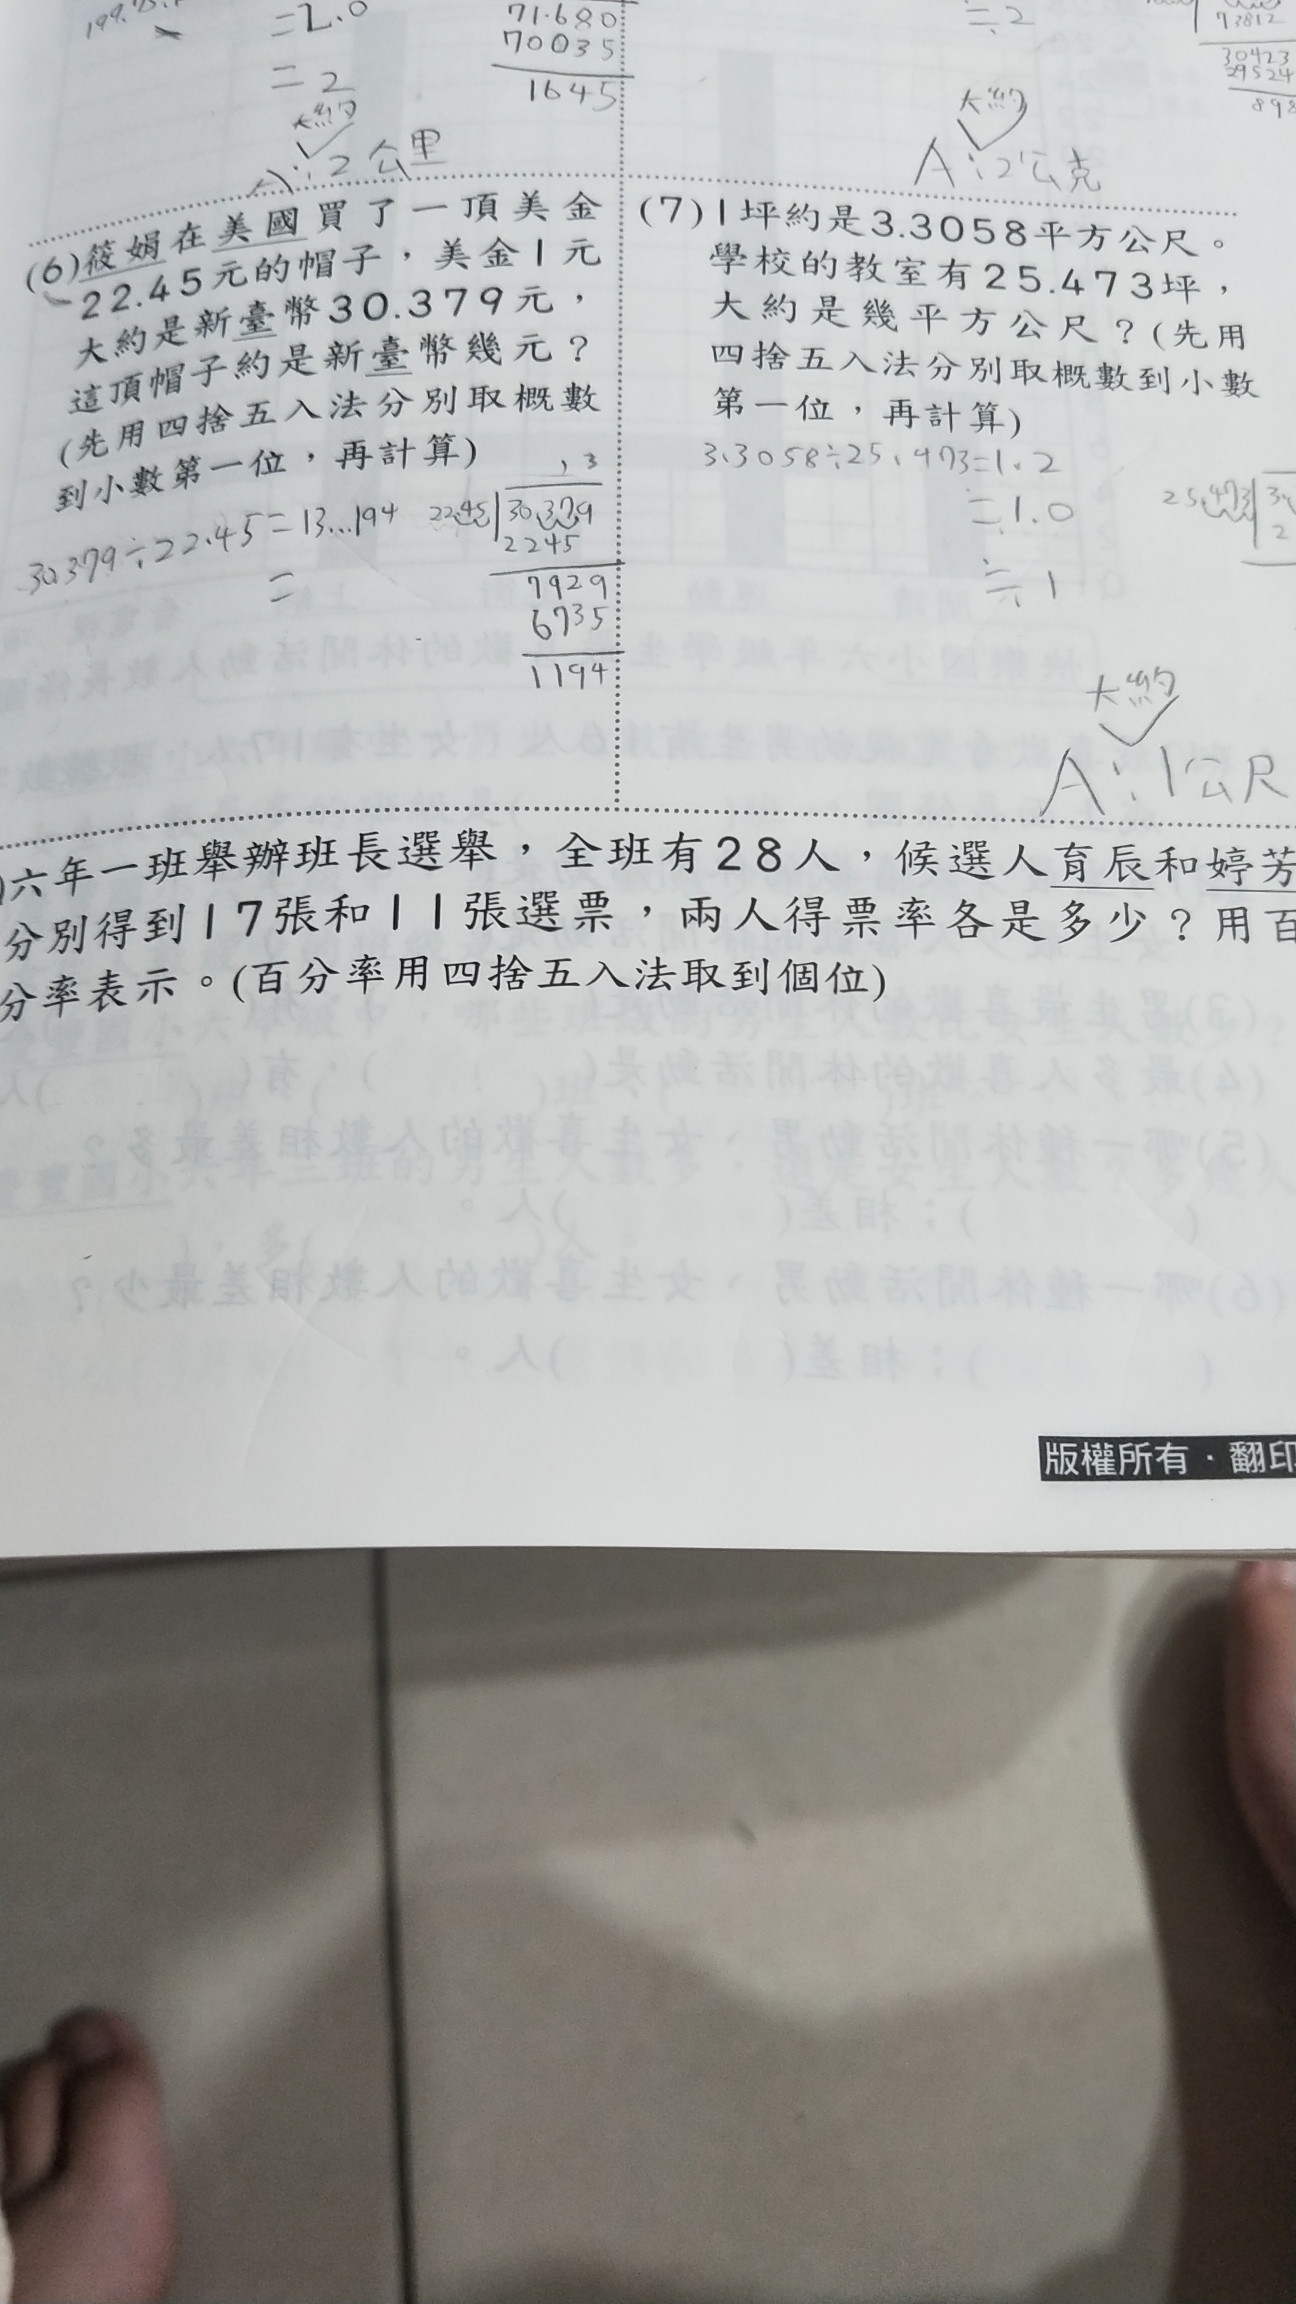 =2.0
71.680
70035
1645
= 2
大約
A:2公里
≒2
73812
30423
29524
898
大約
A:2公克
(6)筱娟在美國買了一頂美金
22.45元的帽子，美金1元
大約是新臺幣30.379元，
這頂帽子約是新臺幣幾元？
(先用四捨五入法分別取概數
到小數第一位，再計算)
30.379÷22.45=13...194
=
1.3
22.45 30.379
2245
7929
6735
1194
(7)1坪約是3.3058平方公尺。
學校的教室有25.473坪，
大約是幾平方公尺？(先用
四捨五入法分別取概數到小數
第一位，再計算)
3.3058÷25.473=1.2
=1.0
≒1
25.473
大約
A:1公尺
)六年一班舉辦班長選舉，全班有28人，候選人育辰和婷芳
分別得到17張和11張選票，兩人得票率各是多少？用百
分率表示。(百分率用四捨五入法取到個位)
版權所有·翻印